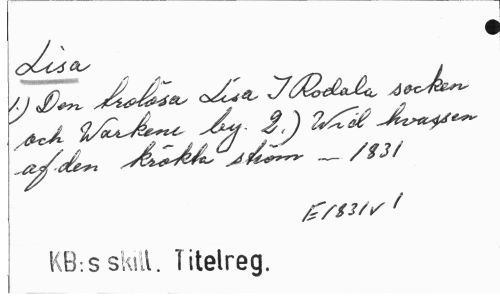 Lisa
1.) Den trolösa Lisa I Rodala socken
och Warkens by. 2.) Wid hvassen
af den krökta ström — 1831
E1831v1
KB:s skill. Titelreg.